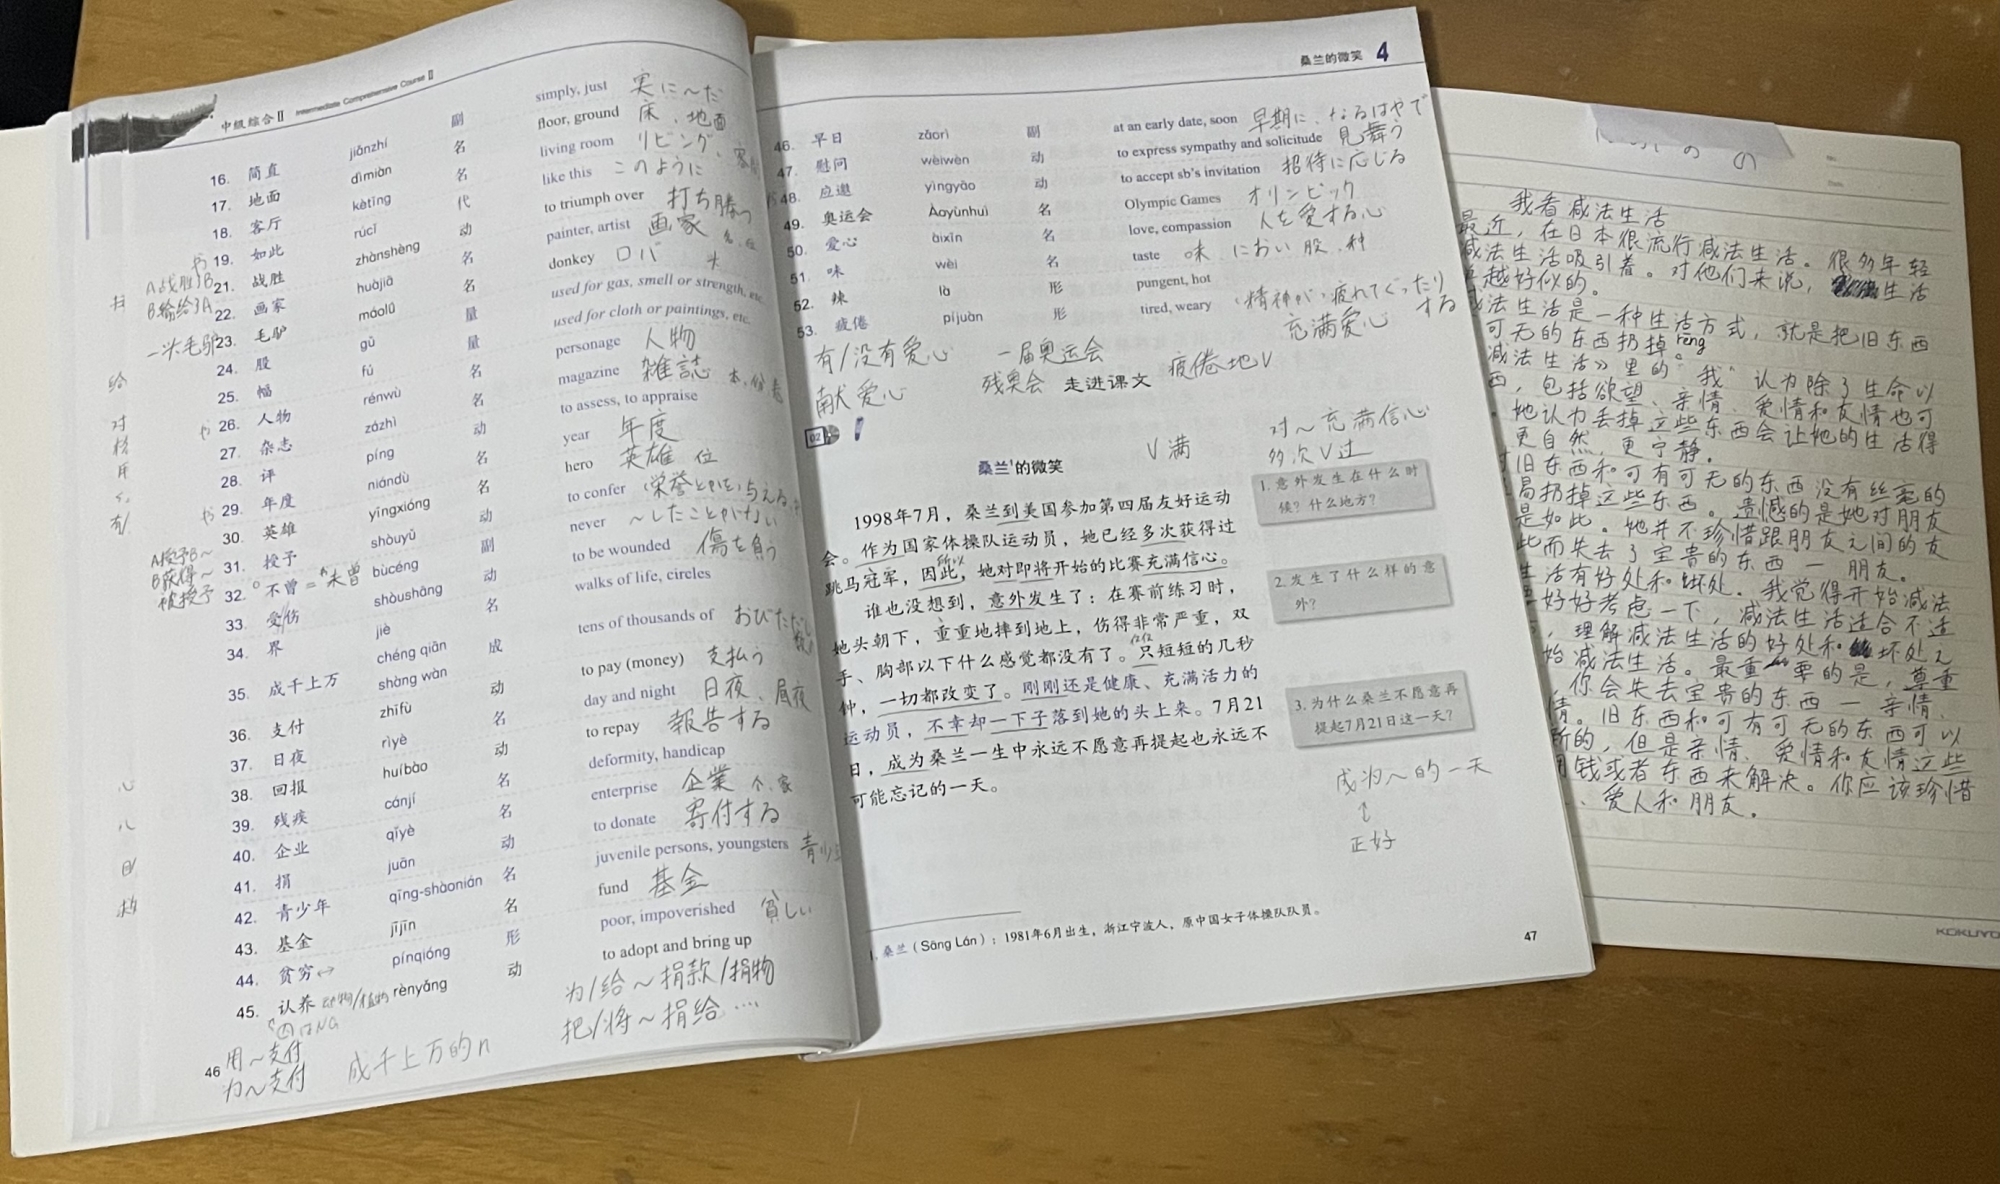 中级综合Ⅱ Intermediate Comprehensive Course Ⅱ
16. 简直 jiǎnzhí 副 simply, just 実に〜だ
17. 地面 dìmiàn 名 floor, ground 床、地面
18. 客厅 kètīng 名 living room リビング、
19. 如此 rúcǐ 代 like this このように
21. 战胜 zhànshèng 动 to triumph over 打ち勝つ
A战胜了B
B输给了A
22. 画家 huàjiā 名 painter, artist 画家
23. 毛驴 máolǘ 名 donkey ロバ 头
一头毛驴
24. 股 gǔ 量 used for gas, smell or strength, etc.
25. 幅 fú 量 used for cloth or paintings, etc.
26. 人物 rénwù 名 personage 人物
27. 杂志 zázhì 名 magazine 雑誌 本,份,
28. 评 píng 动 to assess, to appraise
29. 年度 niándù 名 year 年度
30. 英雄 yīngxióng 名 hero 英雄 位
31. 授予 shòuyǔ 动 to confer (栄誉とかを)与える
A授予B〜
B获得〜
被授予
32. 不曾 = 未曾 bùcéng 副 never 〜したことがない
33. 受伤 shòushāng 动 to be wounded 傷を負う
34. 界 jiè 名 walks of life, circles
35. 成千上万 chéng qiān shàng wàn 成 tens of thousands of おびただしい
36. 支付 zhīfù 动 to pay (money) 支払う
37. 日夜 rìyè 名 day and night 日夜、昼夜
38. 回报 huíbào 动 to repay 報告する
39. 残疾 cánjí 名 deformity, handicap
40. 企业 qǐyè 名 enterprise 企業 个、家
41. 捐 juān 动 to donate 寄付する
42. 青少年 qīng-shàonián 名 juvenile persons, youngsters
43. 基金 jījīn 名 fund 基金
44. 贫穷 ↔ pínqióng 形 poor, impoverished 貧しい
45. 认养 动物/植物 rènyǎng 动 to adopt and bring up
为/给〜捐款/捐物
把/将〜捐给…
46
用〜支付
为〜支付
成千上万的n
桑兰的微笑 4
46. 早日 zǎorì 副 at an early date, soon 早期に、なるはやで
47. 慰问 wèiwèn 动 to express sympathy and solicitude 見舞う
48. 应邀 yìngyāo 动 to accept sb's invitation 招待に応じる
49. 奥运会 Àoyùnhuì 名 Olympic Games オリンピック
50. 爱心 àixīn 名 love, compassion 人を愛する心
51. 味 wèi 名 taste 味、におい 股、种
52. 辣 là 形 pungent, hot
53. 疲倦 píjuàn 形 tired, weary (精神が)疲れてぐったりする
充满爱心
有/没有爱心 一届奥运会
献爱心 残奥会 走进课文 疲倦地V
02
V满
对〜充满信心
多次V过
桑兰¹的微笑
1998年7月，桑兰到美国参加第四届友好运动
会。作为国家体操队运动员，她已经多次获得过
所以
跳马冠军，因此，她对即将开始的比赛充满信心。
谁也没想到，意外发生了：在赛前练习时，
她头朝下，重重地摔到地上，伤得非常严重，双
仅仅
手、胸部以下什么感觉都没有了。只短短的几秒
钟，一切都改变了。刚刚还是健康、充满活力的
运动员，不幸却一下子落到她的头上来。7月21
日，成为桑兰一生中永远不愿意再提起也永远不
可能忘记的一天。
1. 意外发生在什么时
候？什么地方？
2. 发生了什么样的意
外？
3. 为什么桑兰不愿意再
提起7月21日这一天？
成为〜的一天
正好
1. 桑兰（Sāng Lán）：1981年6月出生，浙江宁波人，原中国女子体操队队员。
47
我看减法生活
最近，在日本很流行减法生活。很多年轻
减法生活吸引着。对他们来说，生活
越好似的。
法生活是一种生活方式，就是把旧东西
可无的东西扔掉 rēng
减法生活》里的“我”认为除了生命以
西，包括欲望、亲情、爱情和友情也可
她认为丢掉这些东西会让她的生活得
更自然，更宁静。
旧东西和可有可无的东西没有丝毫的
局扔掉这些东西。遗憾的是她对朋友
是如此。她并不珍惜跟朋友之间的友
此而失去了宝贵的东西 — 朋友。
生活有好处和坏处。我觉得开始减法
好好考虑一下，减法生活适合不适
，理解减法生活的好处和坏处之
始减法生活。最重要的是，尊重
你会失去宝贵的东西 — 亲情、
情。旧东西和可有可无的东西可以
新的，但是亲情、爱情和友情这些
用钱或者东西来解决。你应该珍惜
、爱人和朋友。
KOKUYO